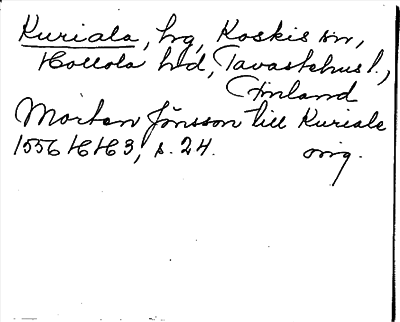 Kuriala, hg, Koskis sn,
Hollola hd, Tavastehus l.,
Finland
Mårten Jönsson till Kuriala
1556 HH3, s. 24. orig.